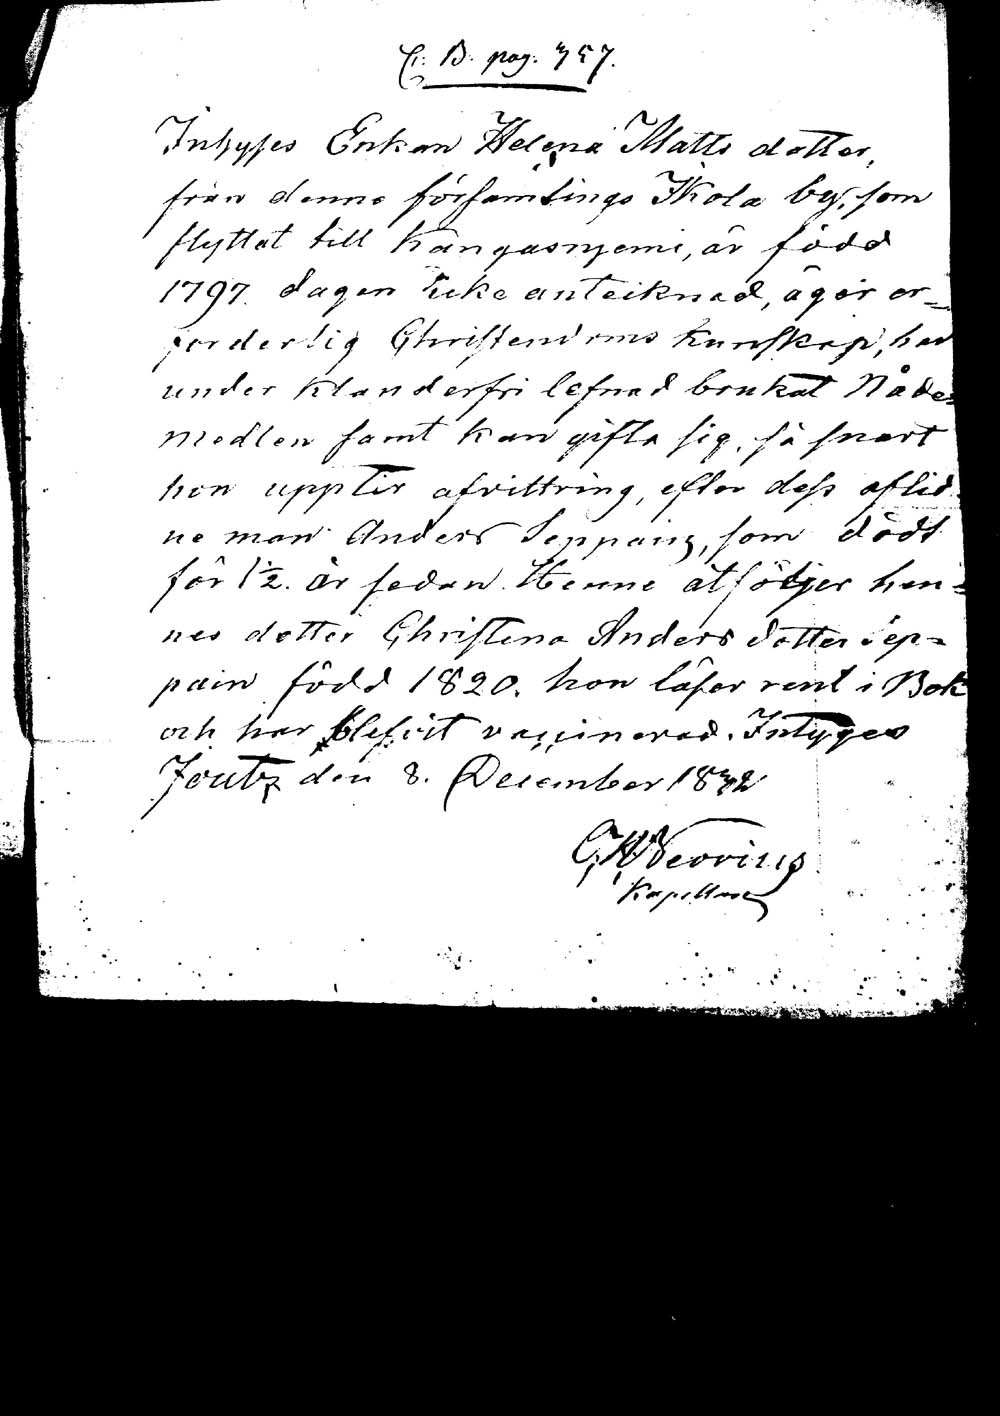 C. B. pag. 357.
Intyges Enkan Helena Matts dotter,
från denne församlings Ikola by, som
flyttat till Kangasnjemi, är född
1797. dagen icke anteiknad, äger er=
forderlig Christendoms kunskap, har
under klanderfri lefnad brukat Nåde=
medlen samt kan gifta sig, så snart
hon uppter afvittring, efter dess aflid=
ne man Anders Seppainz, som dödt
för 1½. år sedan. Henne åtföljer hen=
nes dotter Christina Anders dotter Sep=
pain född 1820. hon läser rent i Bok
och har blefvit vaccinerad. Intyges
Joutz den 8. December 1832
Kapellan